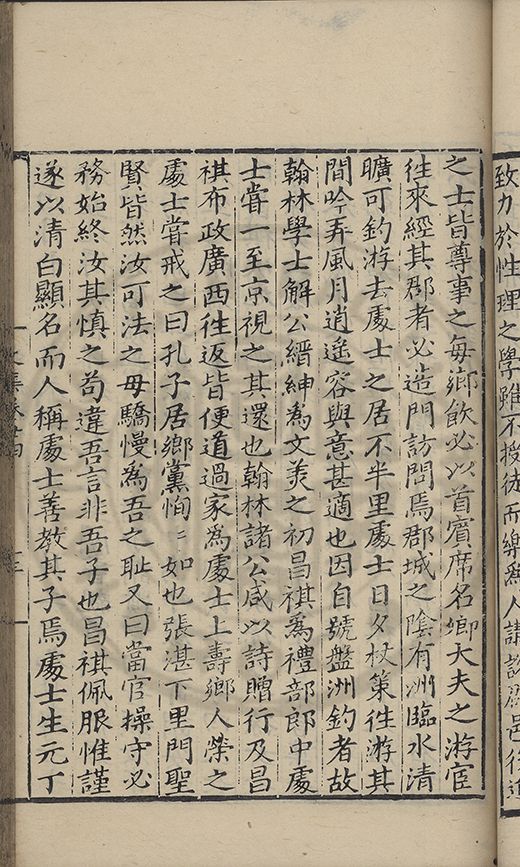 致力於性理之學雖不授徒而樂為人講說
之士皆尊事之每鄉飲必以首賓席名卿大夫之游宦
徃來經其郡者必造門訪問焉郡城之陰有洲臨水清
曠可釣游去處士之居不半里處士日夕杖策徃游其
間吟弄風月逍遙容與意甚適也因自號盤洲釣者故
翰林學士解公縉紳為文美之初昌祺為禮部郎中處
士嘗一至京視之其還也翰林諸公咸以詩贈行及昌
祺布政廣西徃返皆便道過家為處士上壽鄉人榮之
處士嘗戒之曰孔子居鄉黨恂〻如也張湛下里門聖
賢皆然汝可法之毋驕慢為吾之耻又曰當官操守必
務始終汝其慎之苟違吾言非吾子也昌祺佩服惟謹
遂以清白顯名而人稱處士善教其子焉處士生元丁